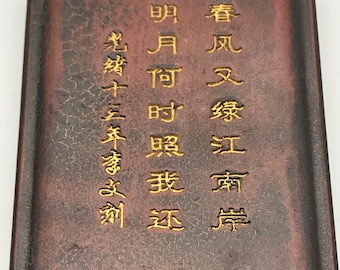 春风又绿江南岸
明月何时照我还
光绪十三年李文刻